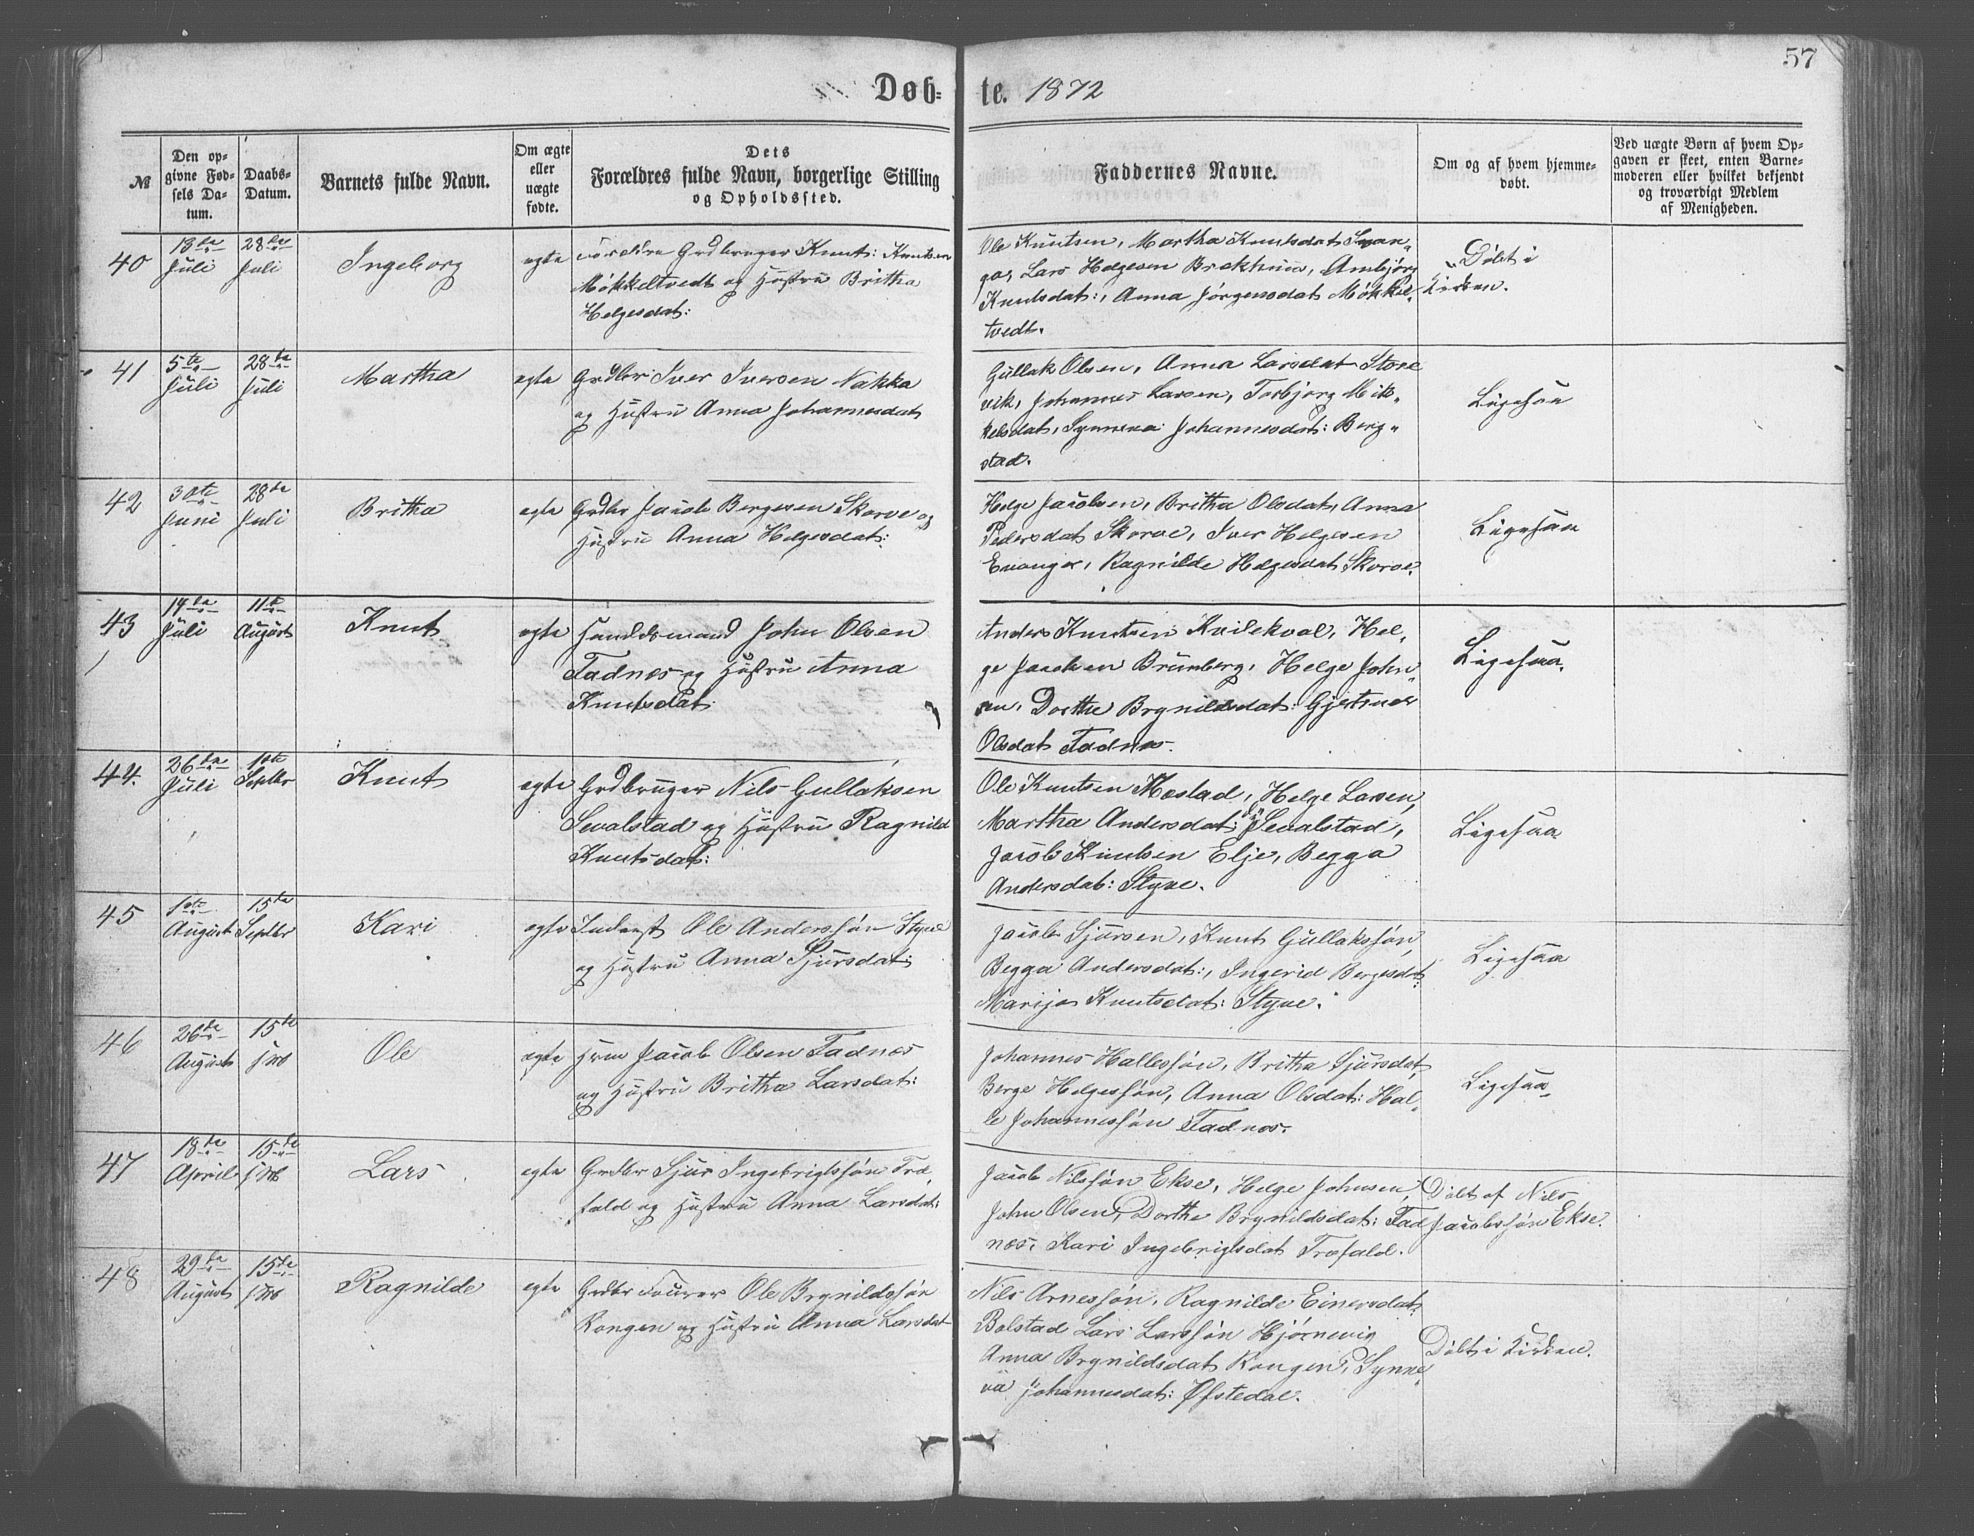 57
Døb-
te. 1872
№
Den op-
givne Fød-
sels Da-
tum.
Daabs-
Datum.
Barnets fulde Navn.
Om ægte
eller
uægte
fødte.
Dets
Forældres fulde Navn, borgerlige Stilling
og Opholdssted.
Faddernes Navne.
Om og af hvem hjemme-
døbt.
Ved uægte Børn af hvem Op-
gaven er skeet, enten Barne-
moderen eller hvilket bekjendt
og troværdigt Medlem
af Menigheden.
40
13de
Juli
28de
Juli
Ingeborg
egte
Grdbruger Knut: Knutsen
Møkkeltvedt og Hustru Britha
Helgesdat:
Ole Knutsen, Martha Knutsdat
Lars Helgesen Brekhuus, Ambjørg
Knutsdat:, Anna Jørgensdat Møkkel-
tvedt.
Døbt i
Kirken.
41
5te
Juli
28de
Juli
Martha
egte
Grdbr Iver Iversen Nakka
og Hustru Anna Johannesdat
Gullak Olsen, Anna Larsdat Store
vik, Johannes Larsen, Torbjørg Mik-
kelsdat, Synneva Johannesdat: Berg-
stad.
Ligesaa
42
30te
Juni
28de
Juli
Britha
egte
Grdbr Jacob Bergesen Skorve og
Hustru Anna Helgesdat:
Helge Jacobsen, Britha Olsdat, Anna
Pedersdat Skorve, Iver Helgesen
Evanger, Ragnilde Helgesdat Skorve.
Ligesaa
43
14de
Juli
11te
August
Knut
egte
Huusmand John Olsen
Fadnes og Hustru Anna
Knutsdat
Anders Knutsen Kvilekval, Hel-
ge Jacobsen Brunberg, Helge John-
sen, Dorthe Brynildsdat: Gjertrud
Olsdat Fadnes.
Ligesaa.
44.
26de
Juli
1ste
Septbr
Knut
egte
Grdbruger Nils Gullaksen
Sevalstad og Hustru Ragnild
Knutsdat:
Ole Knutsen Mestad, Helge Larsen,
Martha Andersdat: Sevalstad,
Jacob Knutsen Elje, Begga
Andersdat: Styve.
Ligesaa
45
1ste
August
15de
Septbr
Kari
egte
Inderst Ole Anderssøn Styve
og Hustru Anna Sjursdat:
Jacob Sjursen, Knut Gullakssøn,
Begga Andersdat:, Ingerid Bergesdat:
Marija Knutsdat: Styve.
Ligesaa
46
26de
August
15de
Ole
egte
Jacob Olsen Fadnes
og Hustru Britha Larsdat:
Johannes Hallessøn, Britha Sjursdat,
Berge Helgessøn, Anna Olsdat: Hal-
le Johannessøn Fadnes.
Ligesaa.
47
18de
April
15de
Lars
egte
Grdbr Sjur Ingebrigtssøn Træ-
fald og Hustru Anna Larsdat:
Jacob Nilssøn Ekse, Helge Johnsen,
John Olsen, Dorthe Brynildsdat: Fad
nes, Kari Ingebrigtsdat Træfald.
Døbt af Nils
Jacobssøn Ekse.
48
29de
August
15de
Ragnilde
egte
Grdbr Ole Brynildssøn
Kongen og Hustru Anna Larsdat
Nils Arnessøn, Ragnilde Einersdat:
Bolstad Lars Larssøn Hjørnevig
Anna Brynildsdat Kongen, Synne-
va Johannesdat: Øfstedal.
Døbt i Kirken.